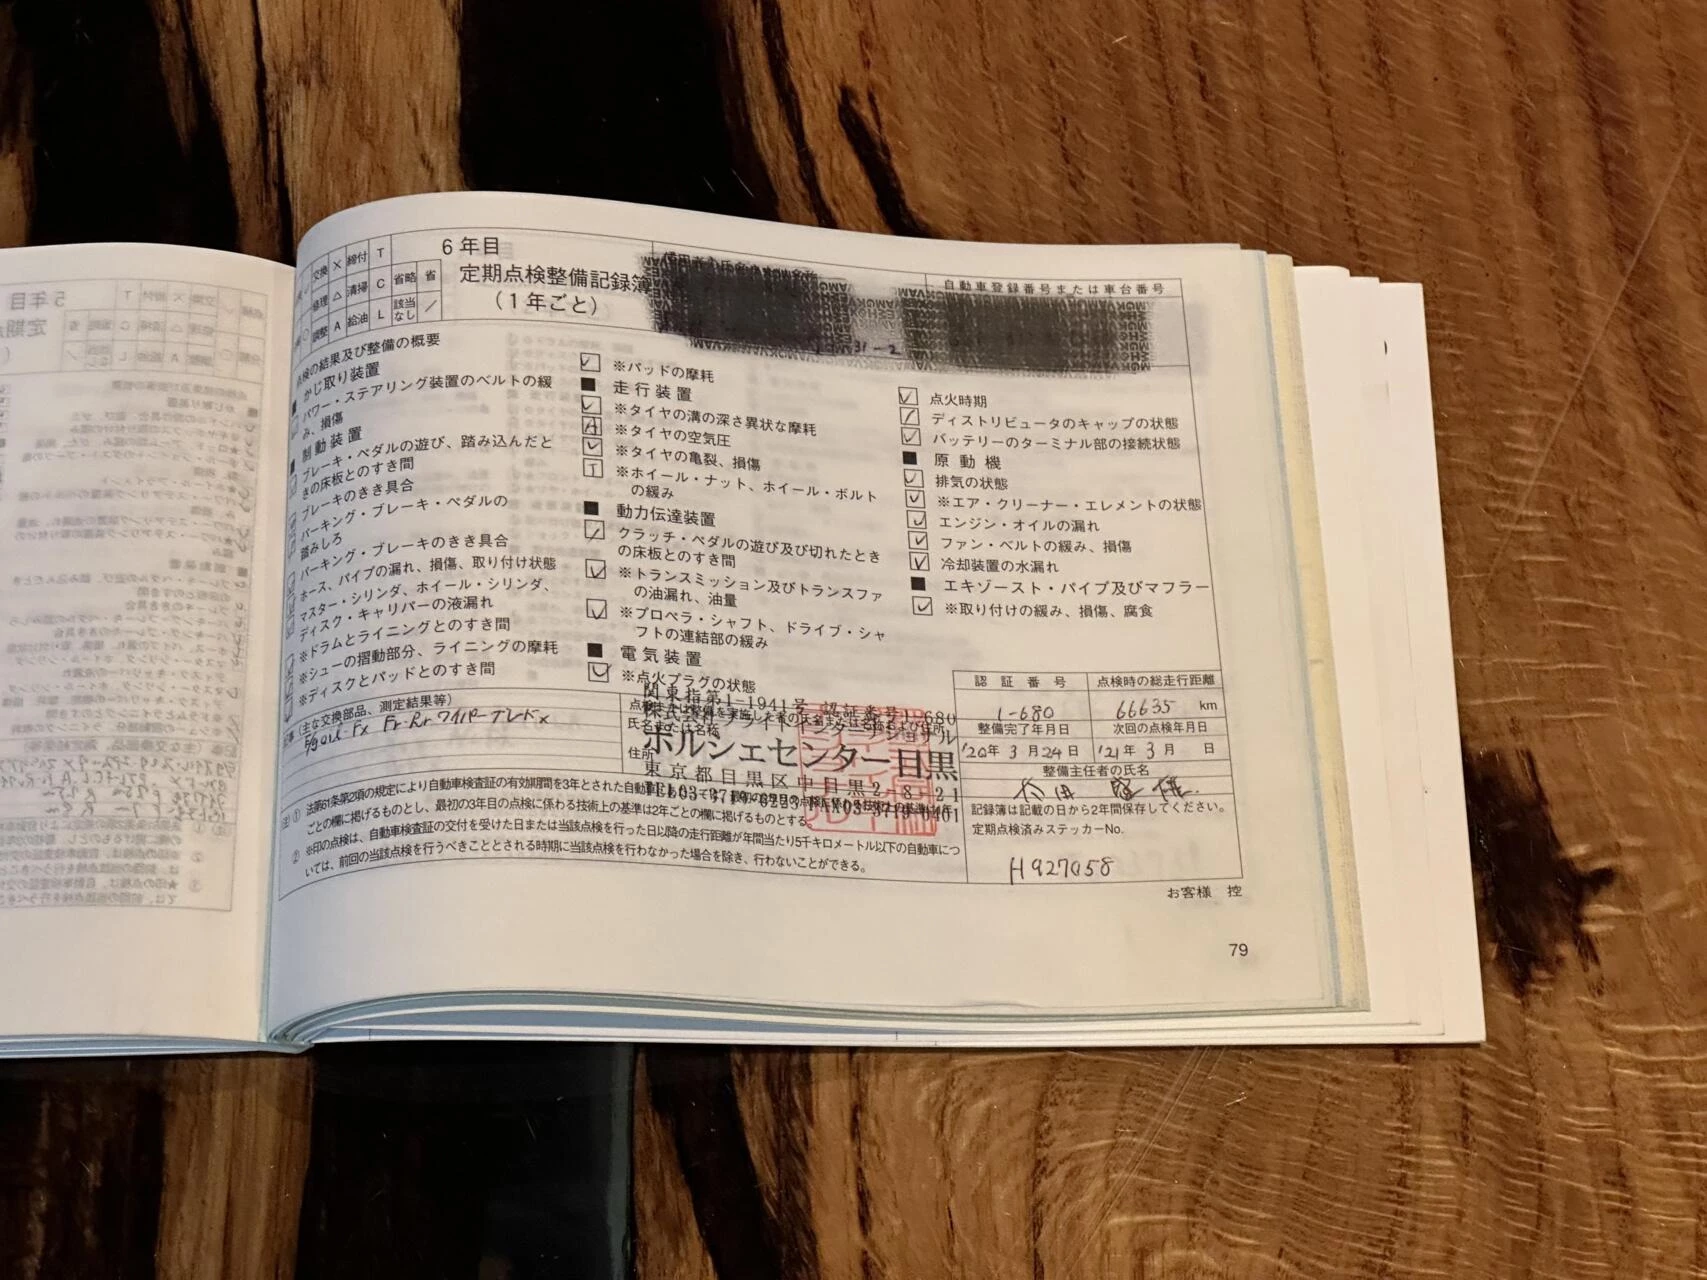 6年目
定期点検整備記録簿
（1年ごと）
交換 × 締付 T
修理 △ 清掃 C 省略 省
調整 A 給油 L 該当なし ／
自動車登録番号または車台番号
31-2
点検の結果及び整備の概要
■ かじ取り装置
パワー・ステアリング装置のベルトの緩
み、損傷
■ 制動装置
ブレーキ・ペダルの遊び、踏み込んだと
きの床板とのすき間
ブレーキのきき具合
パーキング・ブレーキ・ペダルの
踏みしろ
パーキング・ブレーキのきき具合
ホース、パイプの漏れ、損傷、取り付け状態
マスター・シリンダ、ホイール・シリンダ、
ディスク・キャリパーの液漏れ
※ドラムとライニングとのすき間
※シューの摺動部分、ライニングの摩耗
※ディスクとパッドとのすき間
※パッドの摩耗
■ 走行装置
※タイヤの溝の深さ異状な摩耗
A ※タイヤの空気圧
※タイヤの亀裂、損傷
T ※ホイール・ナット、ホイール・ボルト
の緩み
■ 動力伝達装置
クラッチ・ペダルの遊び及び切れたとき
の床板とのすき間
※トランスミッション及びトランスファ
の油漏れ、油量
※プロペラ・シャフト、ドライブ・シャ
フトの連結部の緩み
■ 電気装置
※点火プラグの状態
点火時期
ディストリビュータのキャップの状態
バッテリーのターミナル部の接続状態
■ 原動機
排気の状態
※エア・クリーナー・エレメントの状態
エンジン・オイルの漏れ
ファン・ベルトの緩み、損傷
冷却装置の水漏れ
■ エキゾースト・パイプ及びマフラー
※取り付けの緩み、損傷、腐食
(主な交換部品、測定結果等)
E/g oil・Fx Fr・Rr ワイパーブレード×
関東指第1-1941号 認証番号1-680
氏名または名称
ポルシェセンター目黒
住所
東京都目黒区中目黒2-8-21
TEL03-3719-6223 FAX03-3719-0401
認証番号 点検時の総走行距離
1-680 66635 km
整備完了年月日 次回の点検年月日
'20年3月24日 '21年3月 日
整備主任者の氏名
記録簿は記載の日から2年間保存してください。
定期点検済みステッカーNo.
H927058
注 ① 法第61条第2項の規定により自動車検査証の有効期間を3年とされた自動車
ごとの欄に掲げるものとし、最初の3年目の点検に係わる技術上の基準は2年ごとの欄に掲げるものとする。
② ※印の点検は、自動車検査証の交付を受けた日または当該点検を行った日以降の走行距離が年間当たり5千キロメートル以下の自動車につ
いては、前回の当該点検を行うべきこととされる時期に当該点検を行わなかった場合を除き、行わないことができる。
お客様 控
79